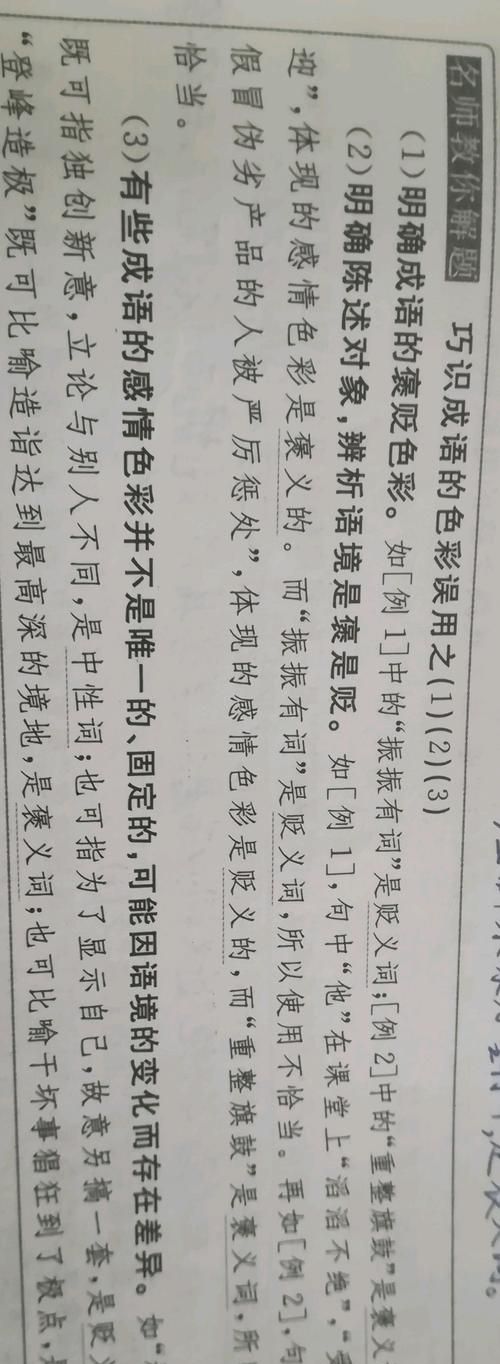 名师教你解题
巧识成语的色彩误用之(1)(2)(3)
(1)明确成语的褒贬色彩。如[例1]中的“振振有词”是贬义词;[例2]中的“重整旗鼓”是褒义
(2)明确陈述对象,辨析语境是褒是贬。如[例1],句中“他”在课堂上“滔滔不绝”,“受
迎”,体现的感情色彩是褒义的。而“振振有词”是贬义词,所以使用不恰当。再如[例2],句
假冒伪劣产品的人被严厉惩处”,体现的感情色彩是贬义的,而“重整旗鼓”是褒义词,所
恰当。
(3)有些成语的感情色彩并不是唯一的、固定的,可能因语境的变化而存在差异。如“
既可指独创新意,立论与别人不同,是中性词;也可指为了显示自己,故意另搞一套,是贬
“登峰造极”既可比喻造诣达到最高深的境地,是褒义词;也可比喻干坏事猖狂到了极点,